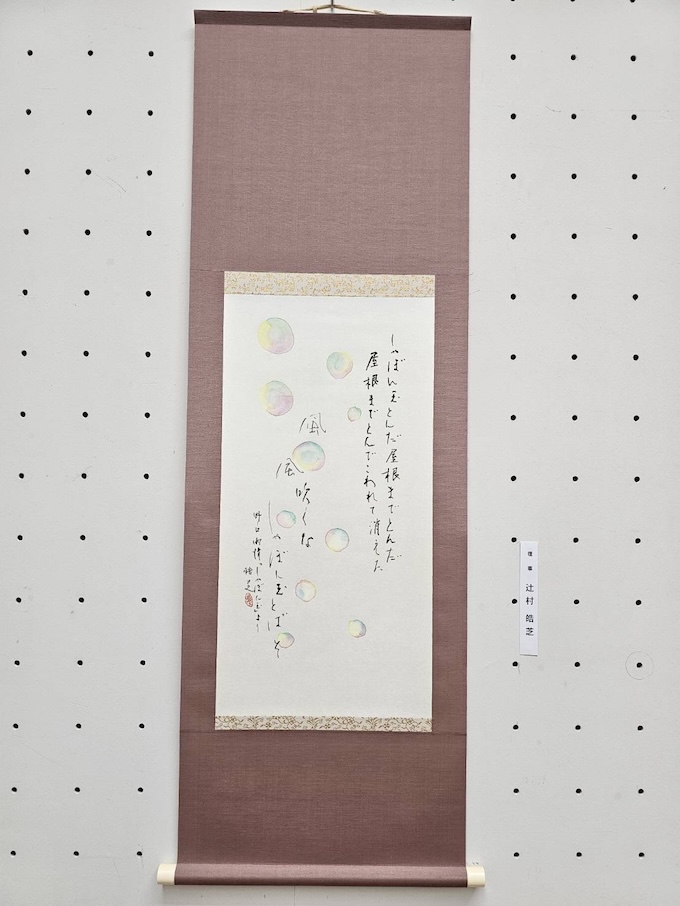 しゃぼん玉とんだ屋根までとんだ
屋根までとんでこわれて消えた
風
風
吹くな
しゃぼん玉とばそ
野口雨情「しゃぼん玉」より
皓芝
理事
辻村 皓芝